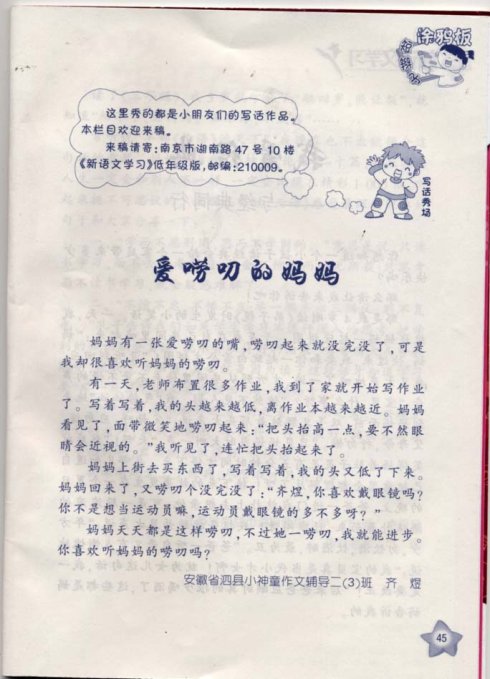 涂鸦板
这里秀的都是小朋友们的写话作品。
本栏目欢迎来稿。
来稿请寄:南京市湖南路 47 号 10 楼
《新语文学习》低年级版,邮编:210009。
写话秀场
爱唠叨的妈妈
妈妈有一张爱唠叨的嘴,唠叨起来就没完没了,可是
我却很喜欢听妈妈的唠叨。
有一天,老师布置很多作业,我到了家就开始写作业
了。写着写着,我的头越来越低,离作业本越来越近。妈妈
看见了,面带微笑地唠叨起来:“把头抬高一点,要不然眼
睛会近视的。”我听见了,连忙把头抬起来了。
妈妈上街去买东西了,写着写着,我的头又低了下来。
妈妈回来了,又唠叨个没完没了:“齐煜,你喜欢戴眼镜吗?
你不是想当运动员嘛,运动员戴眼镜的多不多呀?”
妈妈天天都是这样唠叨,不过她一唠叨,我就能进步。
你喜欢听妈妈的唠叨吗?
安徽省泗县小神童作文辅导二(3)班 齐 煜
45